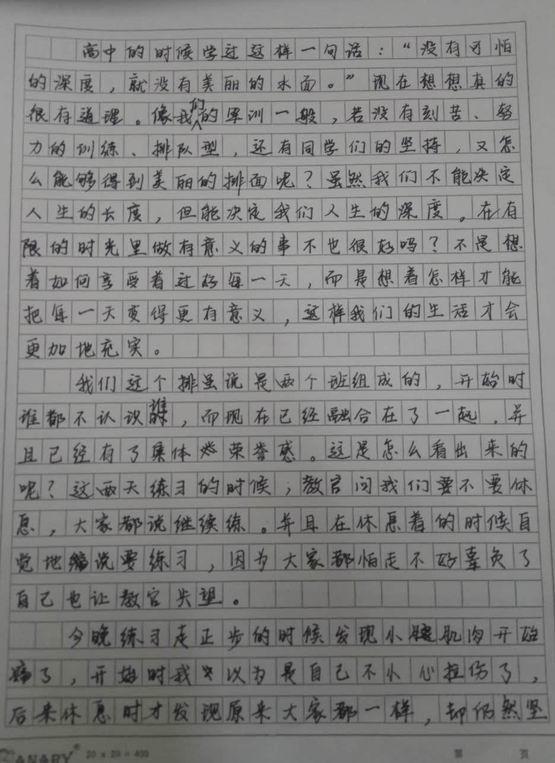 高中的时候学过这样一句话：“没有可怕
的深度，就没有美丽的水面。”现在想想真的
很有道理。像我们的军训一般，若没有刻苦、努
力的训练、排队型，还有同学们的坚持，又怎
么能够得到美丽的排面呢？虽然我们不能决定
人生的长度，但能决定我们人生的深度。在有
限的时光里做有意义的事不也很好吗？不是想
着如何享受着过好每一天，而是想着怎样才能
把每一天变得更有意义，这样我们的生活才会
更加地充实。
我们这个排虽说是两个班组成的，开始时
谁都不认识谁，而现在已经融合在了一起，并
且已经有了集体荣誉感。这是怎么看出来的
呢？这两天练习的时候，教官问我们要不要休
息，大家都说继续练。并且在休息着的时候自
觉地说要练习，因为大家都怕走不好辜负了
自己也让教官失望。
今晚练习走正步的时候发现小腿肌肉开始
痛了，开始时我以为是自己不小心拉伤了，
后来休息时才发现原来大家都一样，却仍然坚
CANARY® 20 x 20 = 400 第 页